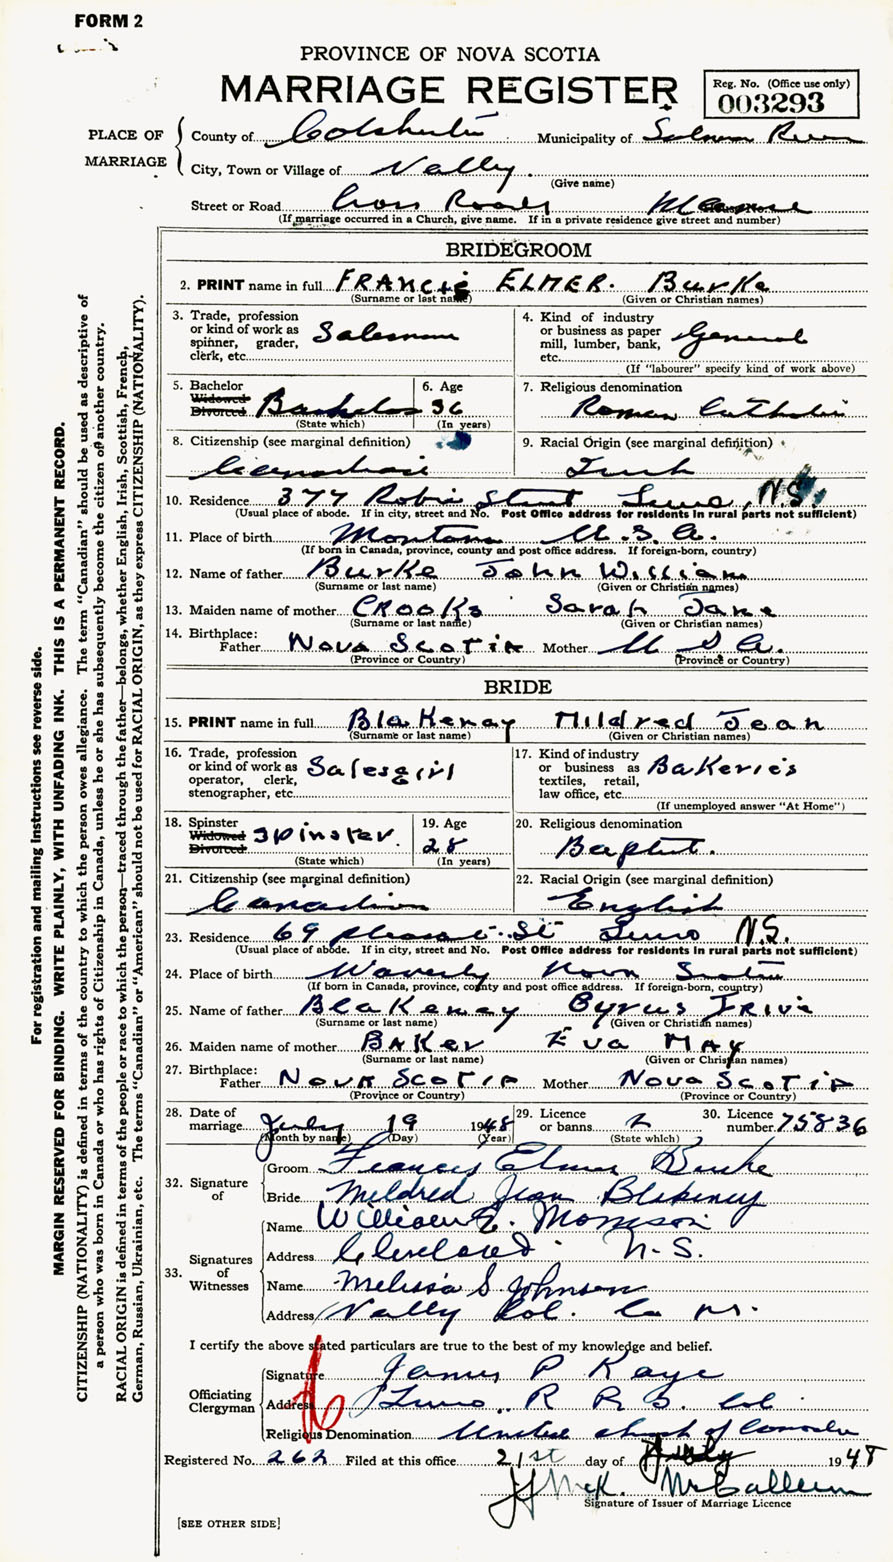 FORM 2
PROVINCE OF NOVA SCOTIA
MARRIAGE REGISTER
Reg. No. (Office use only)
003293
PLACE OF MARRIAGE
County of Colchester Municipality of Salmon River
City, Town or Village of Vally
(Give name)
Street or Road Cross Roads Manse
(If marriage occurred in a Church, give name. If in a private residence give street and number)
BRIDEGROOM
2. PRINT name in full FRANCis ELMER. Burke
(Surname or last name) (Given or Christian names)
3. Trade, profession or kind of work as spinner, grader, clerk, etc. Salesman
4. Kind of industry or business as paper mill, lumber, bank, etc. General
(If "labourer" specify kind of work above)
5. Bachelor Widowed Divorced Bachelor
(State which)
6. Age 36
(In years)
7. Religious denomination
Roman Catholic
8. Citizenship (see marginal definition)
Canadian
9. Racial Origin (see marginal definition)
Irish
10. Residence 377 Robie Street Truro, N.S.
(Usual place of abode. If in city, street and No. Post Office address for residents in rural parts not sufficient)
11. Place of birth Montana U.S.A.
(If born in Canada, province, county and post office address. If foreign-born, country)
12. Name of father Burke John William
(Surname or last name) (Given or Christian names)
13. Maiden name of mother CRooks Sarah Jane
(Surname or last name) (Given or Christian names)
14. Birthplace:
Father Nova Scotia Mother U S A.
(Province or Country) (Province or Country)
BRIDE
15. PRINT name in full Blakeney Mildred Jean
(Surname or last name) (Given or Christian names)
16. Trade, profession or kind of work as operator, clerk, stenographer, etc. Salesgirl
17. Kind of industry or business as textiles, retail, law office, etc. Bakerie's
(If unemployed answer "At Home")
18. Spinster Widowed Divorced Spinster
(State which)
19. Age
28
(In years)
20. Religious denomination
Baptist.
21. Citizenship (see marginal definition)
Canadian
22. Racial Origin (see marginal definition)
English
23. Residence 69 pleasant St Truro N.S.
(Usual place of abode. If in city, street and No. Post Office address for residents in rural parts not sufficient)
24. Place of birth Waverly Nova Scotia
(If born in Canada, province, county and post office address. If foreign-born, country)
25. Name of father Blakeney Cyrus
(Surname or last name) (Given or Christian names)
26. Maiden name of mother Baker Eva May
(Surname or last name) (Given or Christian names)
27. Birthplace:
Father Nova Scotia Mother Nova Scotia
(Province or Country) (Province or Country)
28. Date of marriage July 19 1948
(Month by name) (Day) (Year)
29. Licence or banns L
(State which)
30. Licence number 75836
32. Signature of
Groom Francis Elmer Burke
Bride Mildred Jean Blakeney
33. Signatures of Witnesses
Name William E. Morrison
Address Cleveland N.S.
Name Melissa S Johnson
Address Vally Col. Co N.S.
I certify the above stated particulars are true to the best of my knowledge and belief.
Officiating Clergyman
Signature James P Kaye
Address Truro R R 3. Col
Religious Denomination United church of Canada
Registered No. 262 Filed at this office 21st day of July 1948
McCallum
Signature of Issuer of Marriage Licence
[SEE OTHER SIDE]
For registration and mailing instructions see reverse side.
MARGIN RESERVED FOR BINDING. WRITE PLAINLY, WITH UNFADING INK. THIS IS A PERMANENT RECORD.
CITIZENSHIP (NATIONALITY) is defined in terms of the country to which the person owes allegiance. The term "Canadian" should be used as descriptive of
a person who was born in Canada or who has rights of Citizenship in Canada, unless he or she has subsequently become the citizen of another country.
RACIAL ORIGIN is defined in terms of the people or race to which the person—traced through the father—belongs, whether English, Irish, Scottish, French,
German, Russian, Ukrainian, etc. The terms "Canadian" or "American" should not be used for RACIAL ORIGIN, as they express CITIZENSHIP (NATIONALITY).